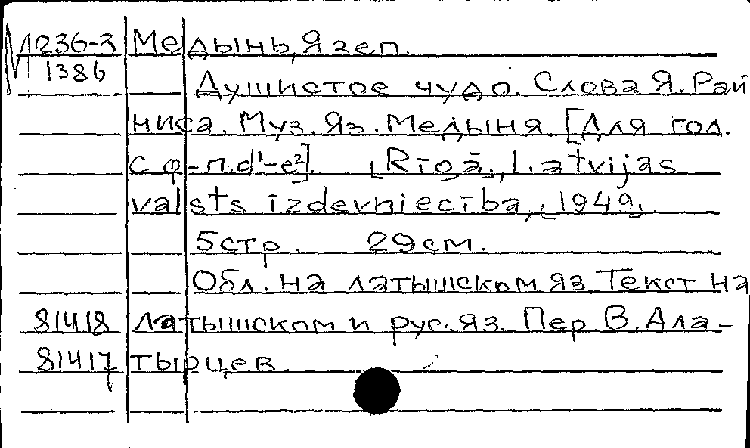 М 236-3 Медынь, Язеп.
1386
Душистое чудо. Слова Я. Рай
ниса. Муз. Яз. Медыня. [Для гол.
с ф-п. d¹-e²]. [Rīgā], Latvijas
valsts izdevniecība, [1949].
5 стр. 29 см.
Обл. на латышском яз. Текст на
81418 латышском и рус. яз. Пер. В. Ала-
81417 тырцев.